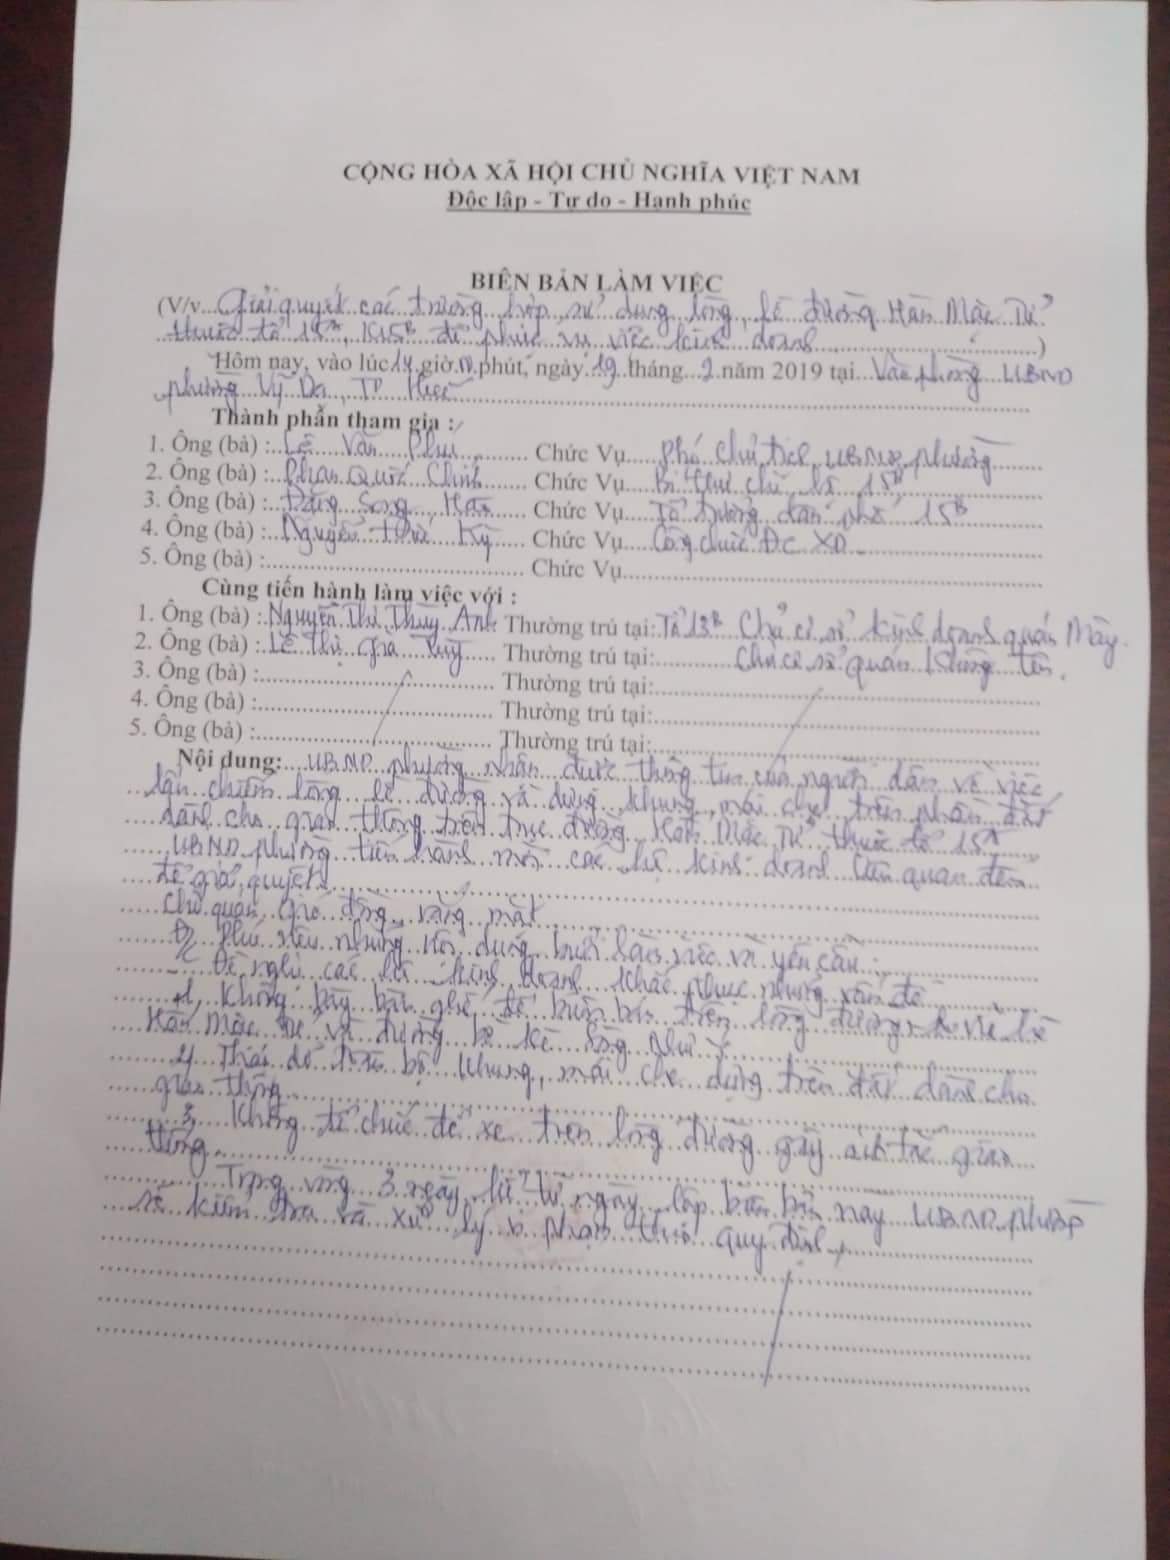 CỘNG HÒA XÃ HỘI CHỦ NGHĨA VIỆT NAM
Độc lập - Tự do - Hạnh phúc
BIÊN BẢN LÀM VIỆC
(V/v Giải quyết các trường hợp sử dụng lòng, lề đường Hàn Mặc Tử
thuộc tổ 15A, 15B để phục vụ việc kinh doanh )
Hôm nay, vào lúc 14 giờ phút, ngày 19 tháng 2 năm 2019 tại Văn phòng UBND
phường Vỹ Dạ, TP Huế
Thành phần tham gia :
1. Ông (bà) : Lê Văn Phú Chức Vụ Phó chủ tịch UBND phường
2. Ông (bà) : Phan Quốc Chinh Chức Vụ Bí thư chi bộ 15B
3. Ông (bà) : Đặng Song Hân Chức Vụ Tổ trưởng dân phố 15B
4. Ông (bà) : Nguyễn Kỳ Chức Vụ Công chức ĐC XD
5. Ông (bà) : Chức Vụ
Cùng tiến hành làm việc với :
1. Ông (bà) : Nguyễn Thị Thùy Anh Thường trú tại: Tổ 13B Chủ cơ sở kinh doanh quán Mây.
2. Ông (bà) : Lê Thị Thường trú tại: Chủ cơ sở quán không tên.
3. Ông (bà) : Thường trú tại:
4. Ông (bà) : Thường trú tại:
5. Ông (bà) : Thường trú tại:
Nội dung: UBND phường nhận được thông tin của người dân về việc
lấn chiếm lòng lề đường và dựng khung, mái che trên phần đất
dành cho giao thông trên trục đường Hàn Mặc Tử thuộc tổ 15A
UBND phường tiến hành mời các hộ kinh doanh liên quan đến
để giải quyết.
Chủ quán Gió đồng vắng mặt
Đ/c Phú nêu những nội dung buổi làm việc và yêu cầu:
- Đề nghị các hộ kinh doanh khắc phục những vấn đề
1, Không bày bàn ghế để buôn bán trên lòng đường, vỉa hè
Hàn Mặc Tử và đường bờ kè sông Như Ý
2, Tháo dỡ toàn bộ khung, mái che dựng trên đất dành cho
giao thông
3, Không tổ chức để xe trên lòng đường gây ách tắc giao
thông.
Trong vòng 3 ngày kể từ ngày lập biên bản này UBND phường
sẽ kiểm tra và xử lý vi phạm theo quy định